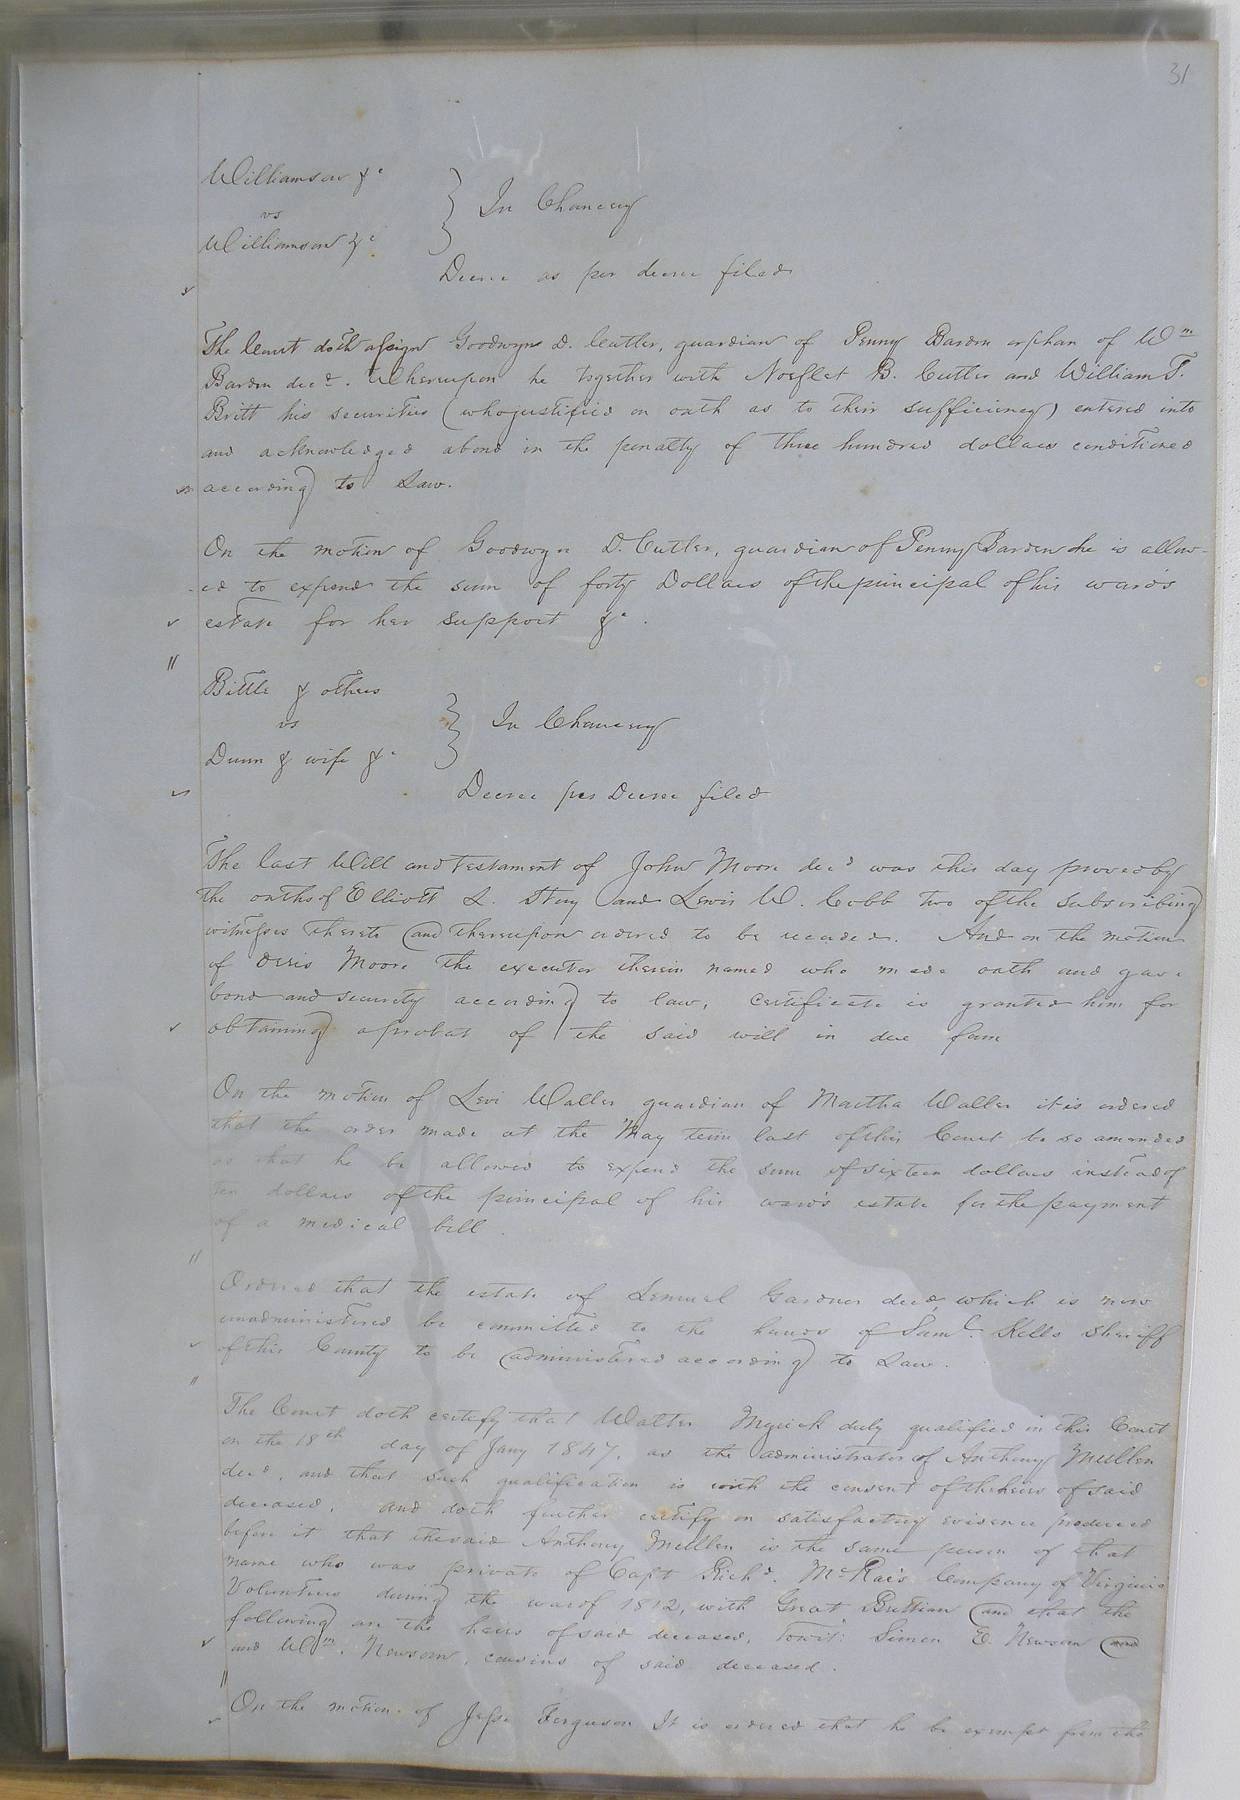 31
Williamson &c
vs
Williamson &c
In Chancery
Decree as per decree filed
The Court doth assign Goodwyn D. Cutler, guardian of Penny Barden orphan of Wm
Barden decd. Whereupon he together with Norflet B. Cutler and William T.
Britt his securities (who justified on oath as to their sufficiency) entered into
and acknowledged a bond in the penalty of three hundred dollars conditioned
according to Law.
On the motion of Goodwyn D. Cutler, guardian of Penny Barden he is allow-
-ed to expend the sum of forty Dollars of the principal of his ward's
estate for her support &c.
Bittle & others
vs
Dunn & wife &c
In Chancery
Decree per Decree filed
The last Will and testament of John Moore decd was this day proved by
the oaths of Elliott L. Story and Lewis W. Cobb two of the subscribing
witnesses thereto and thereupon ordered to be recorded. And on the motion
of Moore the executor therein named who made oath and gave
bond and security according to law, certificate is granted him for
obtaining a probat of the said will in due form
On the motion of Levi Waller guardian of Martha Waller it is ordered
that the order made at the May term last of this Court be so amended
as that he be allowed to expend the sum of sixteen dollars instead of
ten dollars of the principal of his ward's estate for the payment
of a medical bill.
Ordered that the estate of Lemuel Gardner decd, which is now
unadministered be committed to the hands of Saml. Kello Sheriff
of this County to be administered according to Law.
The Court doth certify that Walter Myrick duly qualified in this Court
on the 18th day of Jany 1847, as the administrator of Anthony Mullen
decd, and that such qualification is with the consent of the heirs of said
deceased. and doth further certify on satisfactory evidence produced
before it that the said Anthony Mullen is the same person of that
name who was private of Capt Richd. McRae's Company of Virginia
Volunteers during the war of 1812, with Great Brittian and that the
following are the heirs of said deceased, towit: Simon E. Newsom and
and Wm. Newsom, cousins of said deceased.
On the motion of Jesse Ferguson It is ordered that he be exempt from the